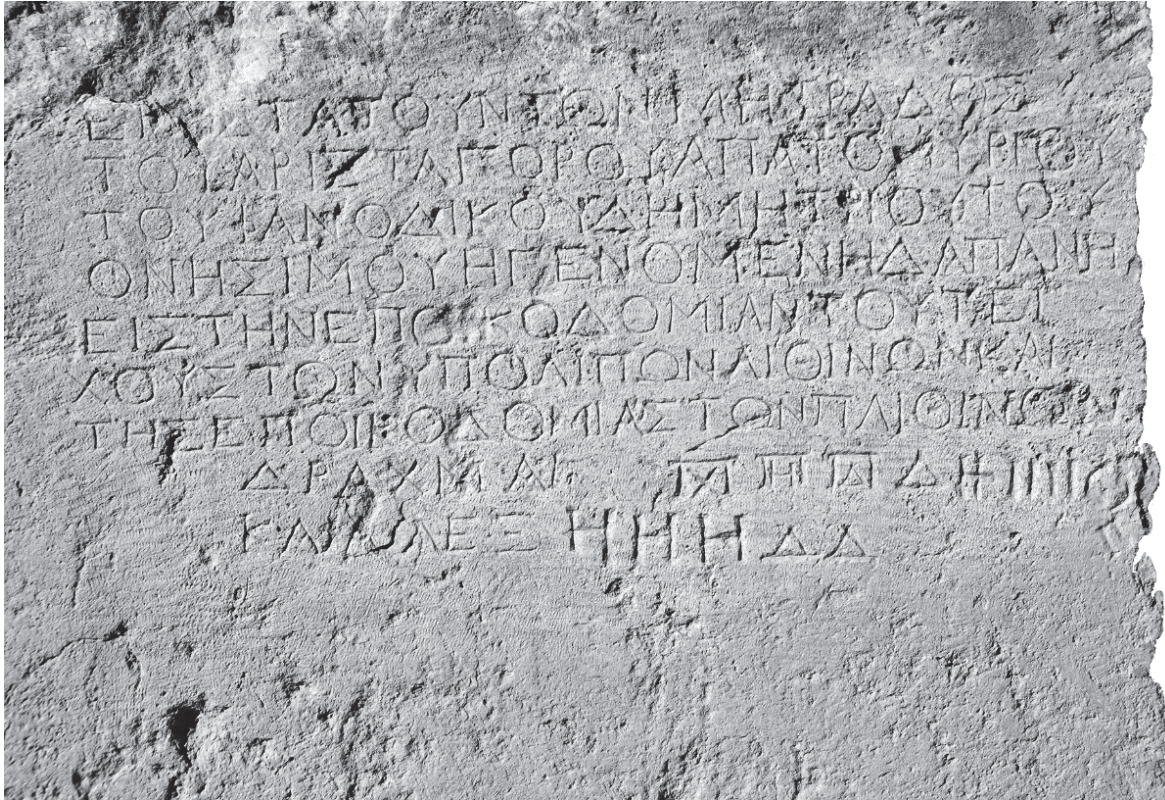 ΕΠΙΣΤΑΤΟΥΝΤΩΝΜΗΤΡΑΔΟΣ
ΤΟΥΑΡΙΣΤΑΓΟΡΟΥΑΠΑΤΟΥΡΙΟΥ
ΤΟΥΦΑΝΟΔΙΚΟΥΔΗΜΗΤΡΙΟΥΤΟΥ
ΟΝΗΣΙΜΟΥΗΓΕΝΟΜΕΝΗΔΑΠΑΝΗ
ΕΙΣΤΗΝΕΠΟΙΚΟΔΟΜΙΑΝΤΟΥΤΕΙ
ΧΟΥΣΤΩΝΥΠΟΛΙΠΩΝΛΙΘΙΝΩΝΚΑΙ
ΤΗΣΕΠΟΙΚΟΔΟΜΙΑΣΤΩΝΠΛΙΘΙΝΩΝ
ΔΡΑΧΜΑΙ
ΚΑΙΑΛΕΞ ΗΗΗΔΔ